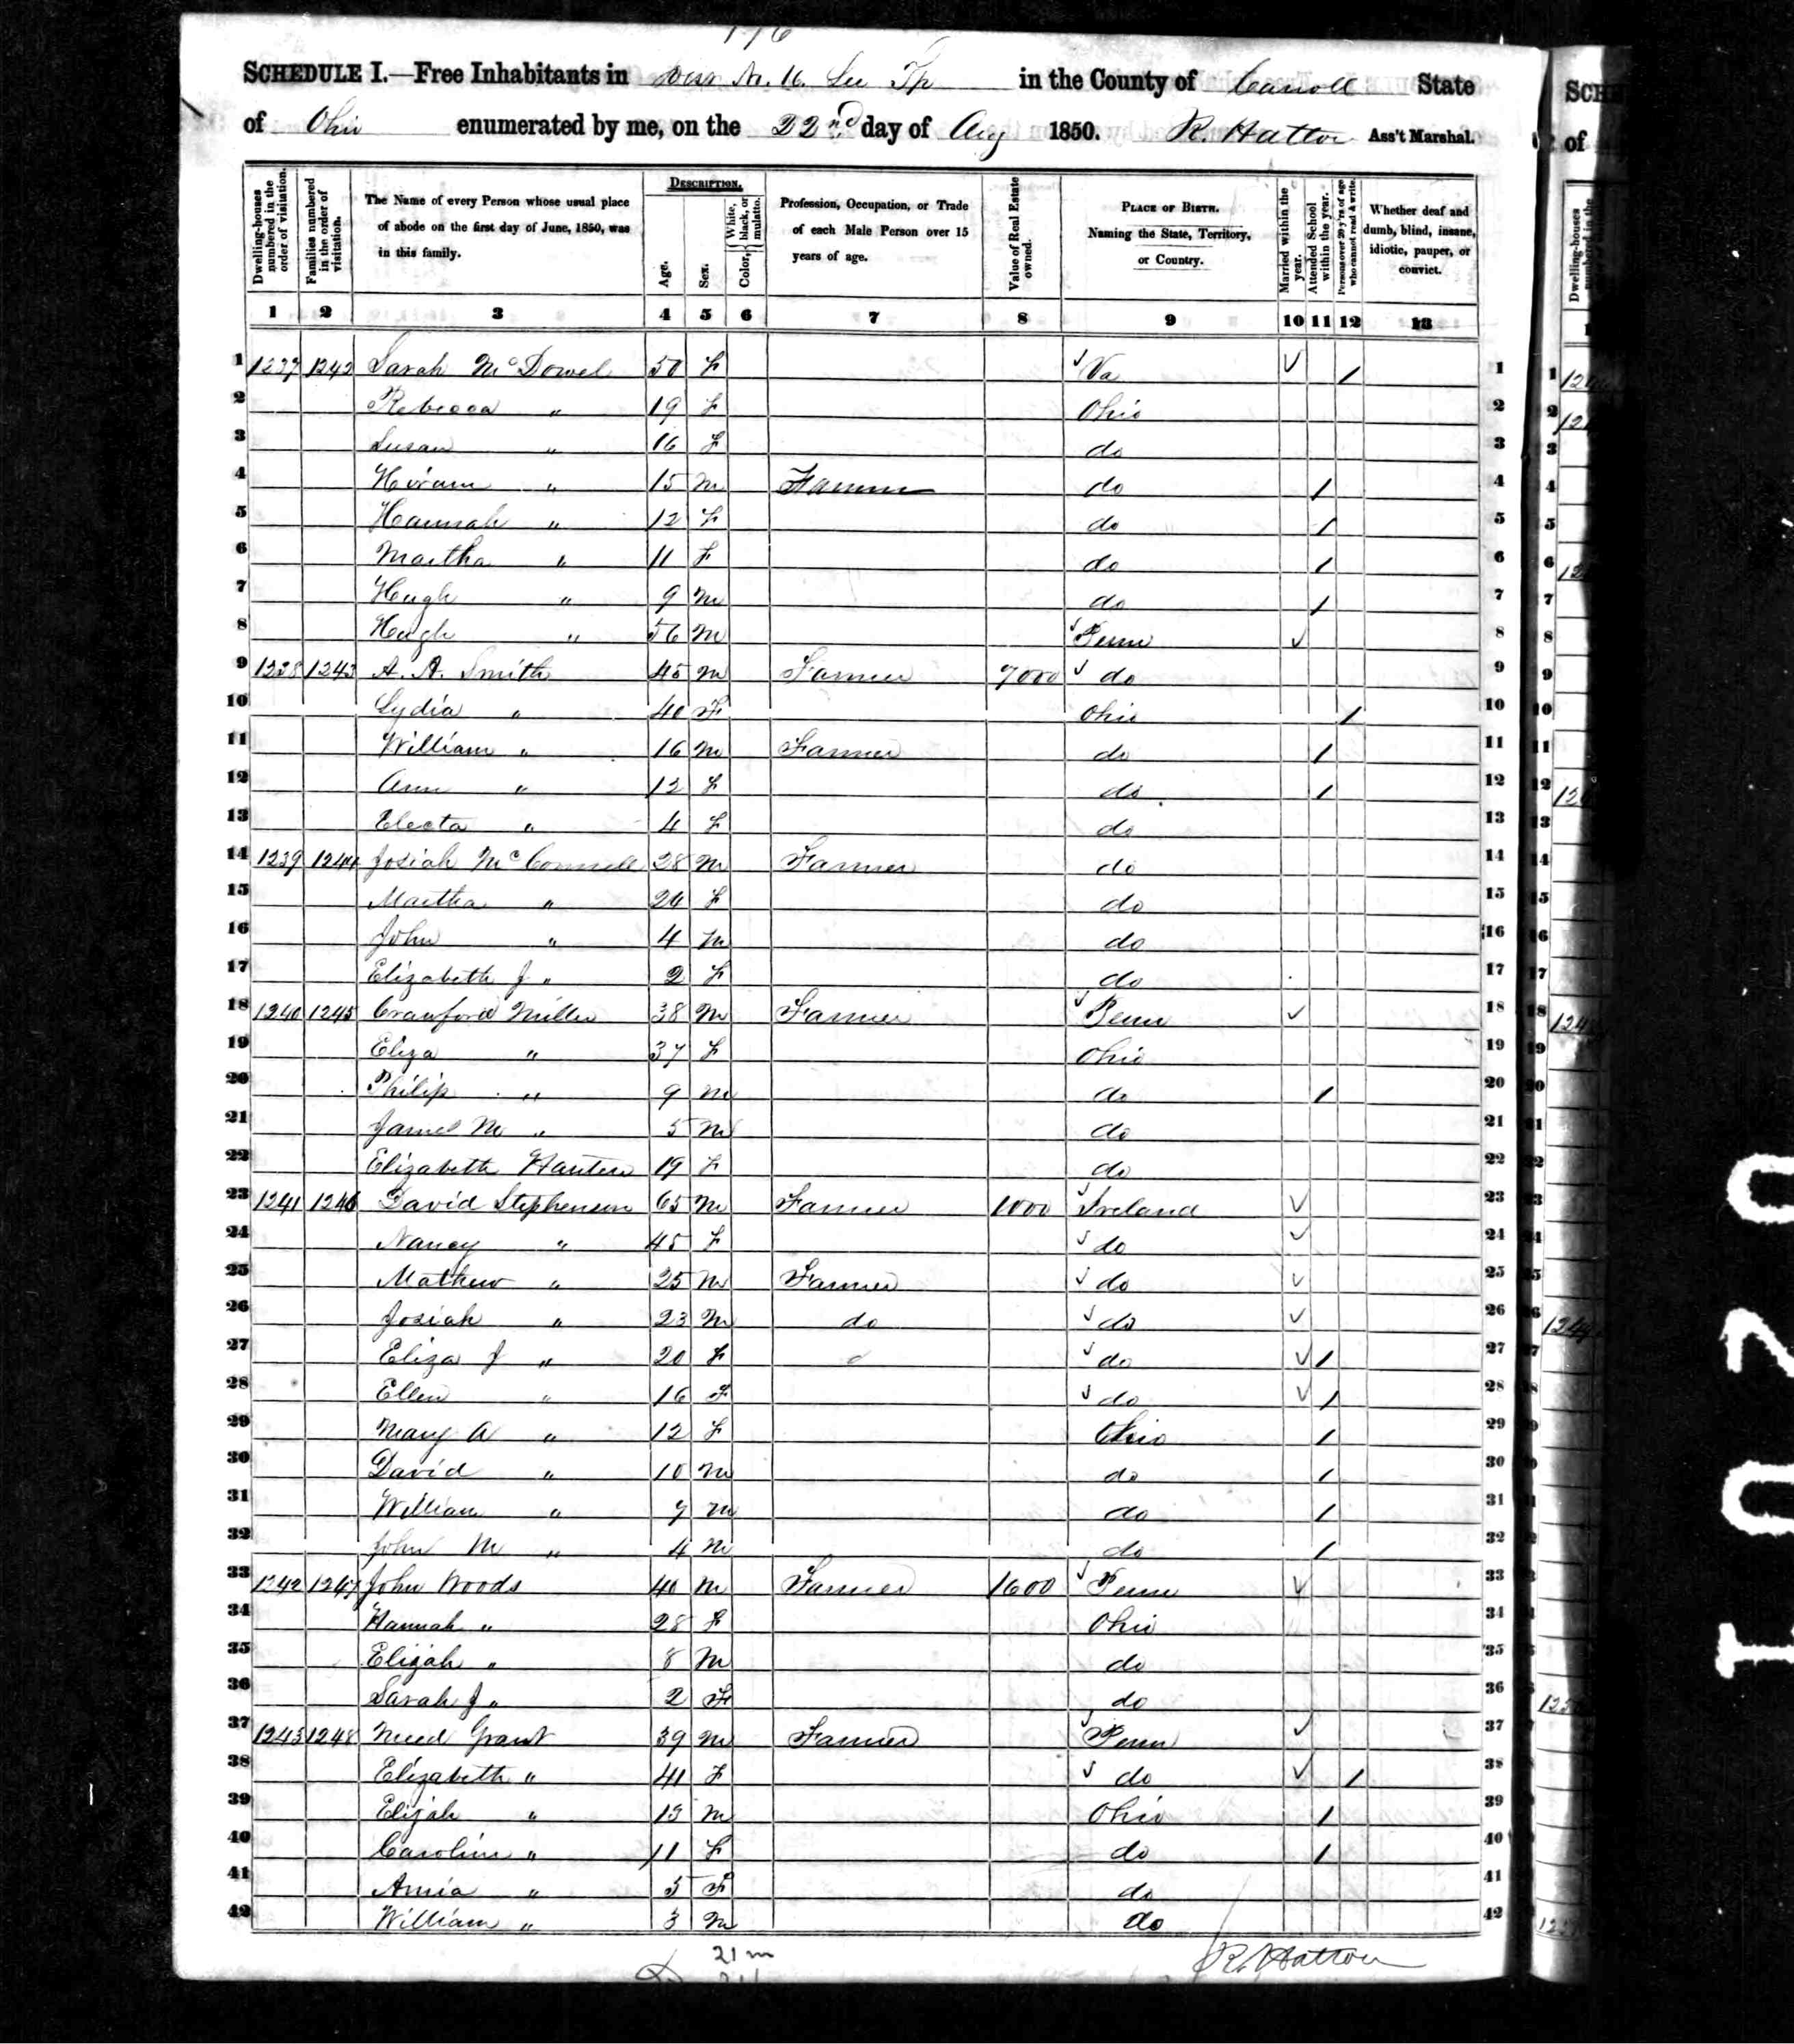 176
SCHEDULE I.—Free Inhabitants in Divis No. 16. Lee Tp in the County of Carroll State
of Ohio enumerated by me, on the 22nd day of Aug 1850. R. Hatton Ass't Marshal.
Dwelling-houses numbered in the order of visitation.
Families numbered in the order of visitation.
The Name of every Person whose usual place of abode on the first day of June, 1850, was in this family.
DESCRIPTION.
Age.
Sex.
Color, { White, black, or mulatto.
Profession, Occupation, or Trade of each Male Person over 15 years of age.
Value of Real Estate owned.
PLACE OF BIRTH. Naming the State, Territory, or Country.
Married within the year.
Attended School within the year.
Persons over 20 y'rs of age who cannot read & write.
Whether deaf and dumb, blind, insane, idiotic, pauper, or convict.
1 2 3 4 5 6 7 8 9 10 11 12 13
1 1237 1242 Sarah McDowel 50 F Va 1
2 Rebecca " 19 F Ohio 2
3 Susan " 16 F do 3
4 Hiram " 15 M Farmer do / 4
5 Hannah " 12 F do / 5
6 Martha " 11 F do / 6
7 Hugh " 9 M do / 7
8 Hugh " 56 M Penn 8
9 1238 1243 A. A. Smith 45 M Farmer 7000 do 9
10 Lydia " 40 F Ohio / 10
11 William " 16 M Farmer do / 11
12 Ann " 12 F do / 12
13 Electa " 4 F do 13
14 1239 1244 Josiah McConnell 28 M Farmer do 14
15 Martha " 24 F do 15
16 John " 4 M do 16
17 Elizabeth J " 2 F do 17
18 1240 1245 Crawford Miller 38 M Farmer Penn 18
19 Eliza " 37 F Ohio 19
20 Philip " 9 M do / 20
21 James M " 5 M do 21
22 Elizabeth 19 F do 22
23 1241 1246 David Stephenson 65 M Farmer 1000 Ireland 23
24 Nancy " 45 F do 24
25 Mathew " 25 M Farmer do 25
26 Josiah " 23 M do do 26
27 Eliza J " 20 F do / 27
28 Ellen " 16 F do / 28
29 Mary A " 12 F Ohio / 29
30 David " 10 M do / 30
31 William " 7 M do / 31
32 John M " 4 M do / 32
33 1242 1247 John Woods 40 M Farmer 1600 Penn 33
34 Hannah " 28 F Ohio 34
35 Elijah " 8 M do 35
36 Sarah J " 2 F do 36
37 1243 1248 Need Grant 39 M Farmer Penn 37
38 Elizabeth " 41 F do / 38
39 Elijah " 13 M Ohio / 39
40 Caroline " 11 F do / 40
41 " 5 F do 41
42 William " 3 M do 42
21 m
R. Hatton
1020